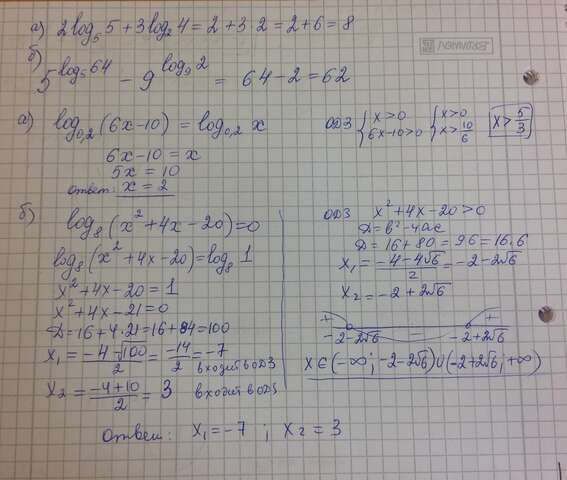 а) 2log₅5 + 3log₂4 = 2 + 3·2 = 2+6 = 8
б)
5^log₅64 - 9^log₉2 = 64-2 = 62
а) log₀,₂(6x-10) = log₀,₂ x
6x-10 = x
5x = 10
ответ: x = 2
ОДЗ { x>0 { x>0 x > 5/3
6x-10>0 x > 10/6
б) log₈(x²+4x-20)=0
log₈(x²+4x-20)=log₈ 1
x²+4x-20=1
x²+4x-21=0
D=16+4·21=16+84=100
x₁ = -4-√100/2 = -14/2 = -7 входит в ОДЗ
x₂ = -4+10/2 = 3 входит в ОДЗ
ОДЗ x²+4x-20>0
D=b²-4ac
D=16+80=96=16·6
x₁ = -4-4√6/2 = -2-2√6
x₂ = -2+2√6
+ - +
-2-2√6 -2+2√6
x∈(-∞; -2-2√6)∪(-2+2√6; +∞)
Ответ: x₁=-7 ; x₂=3